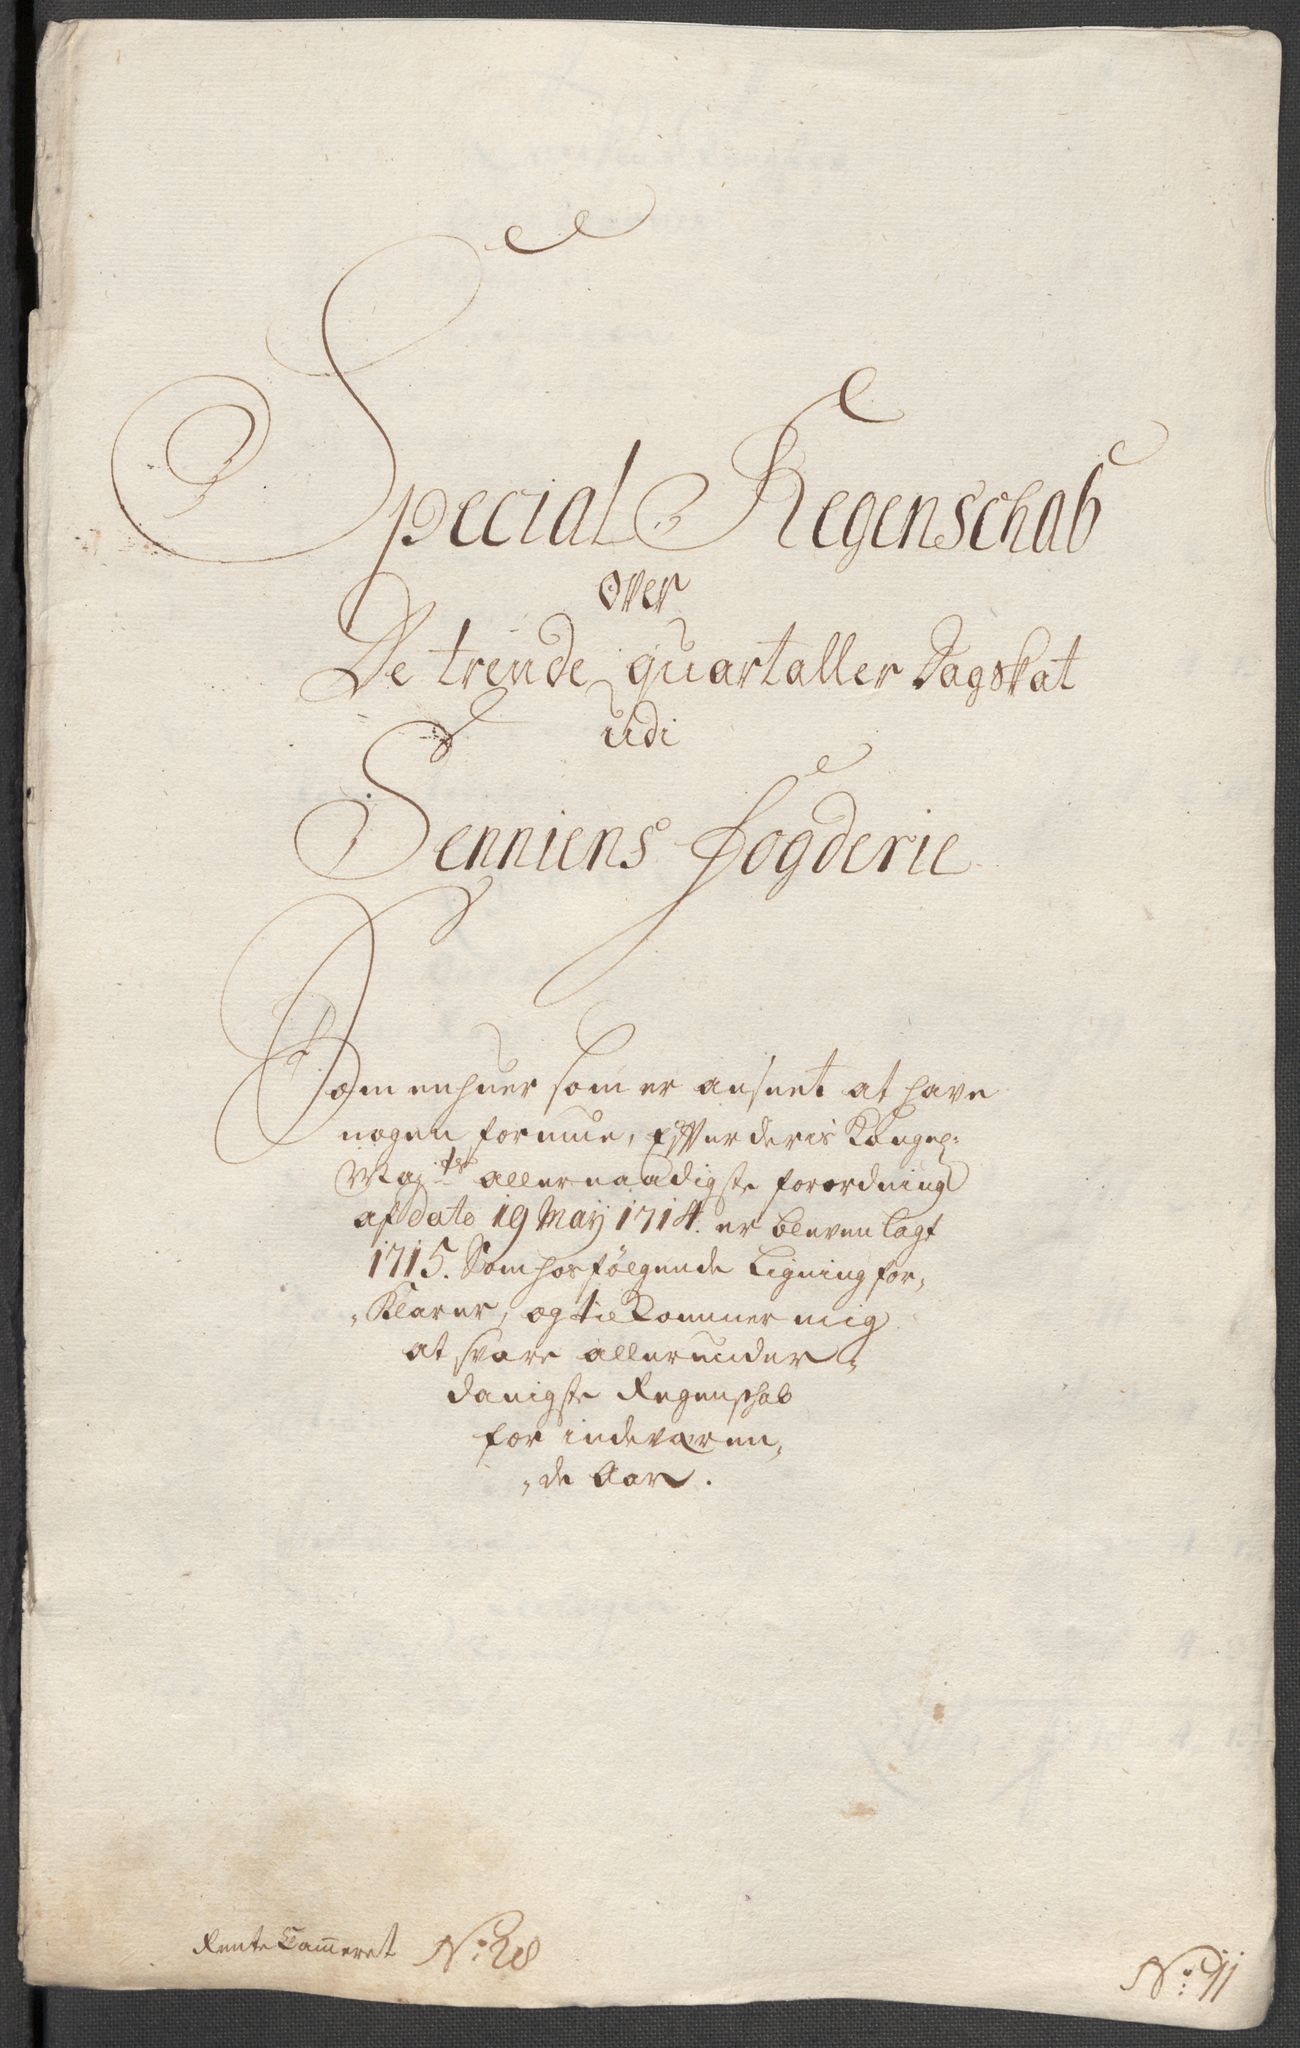 Special Regenschab
over
De trende quartaller Dagskat
udi
Senniens fogderie
Som enhver som er anseet at have
nogen formue, Efter deris Kongel:
May:ts allernaadigste forordning
af dato 19 May 1714. er bleven lagt
1715. Som hosfølgende Ligning for,,
,,klarer, og tilkommer mig
at svare allerunder,,
danigste Regenschab
for indeværen,,
,,de Aar.
Rente Cammeret No: 28
No: 11